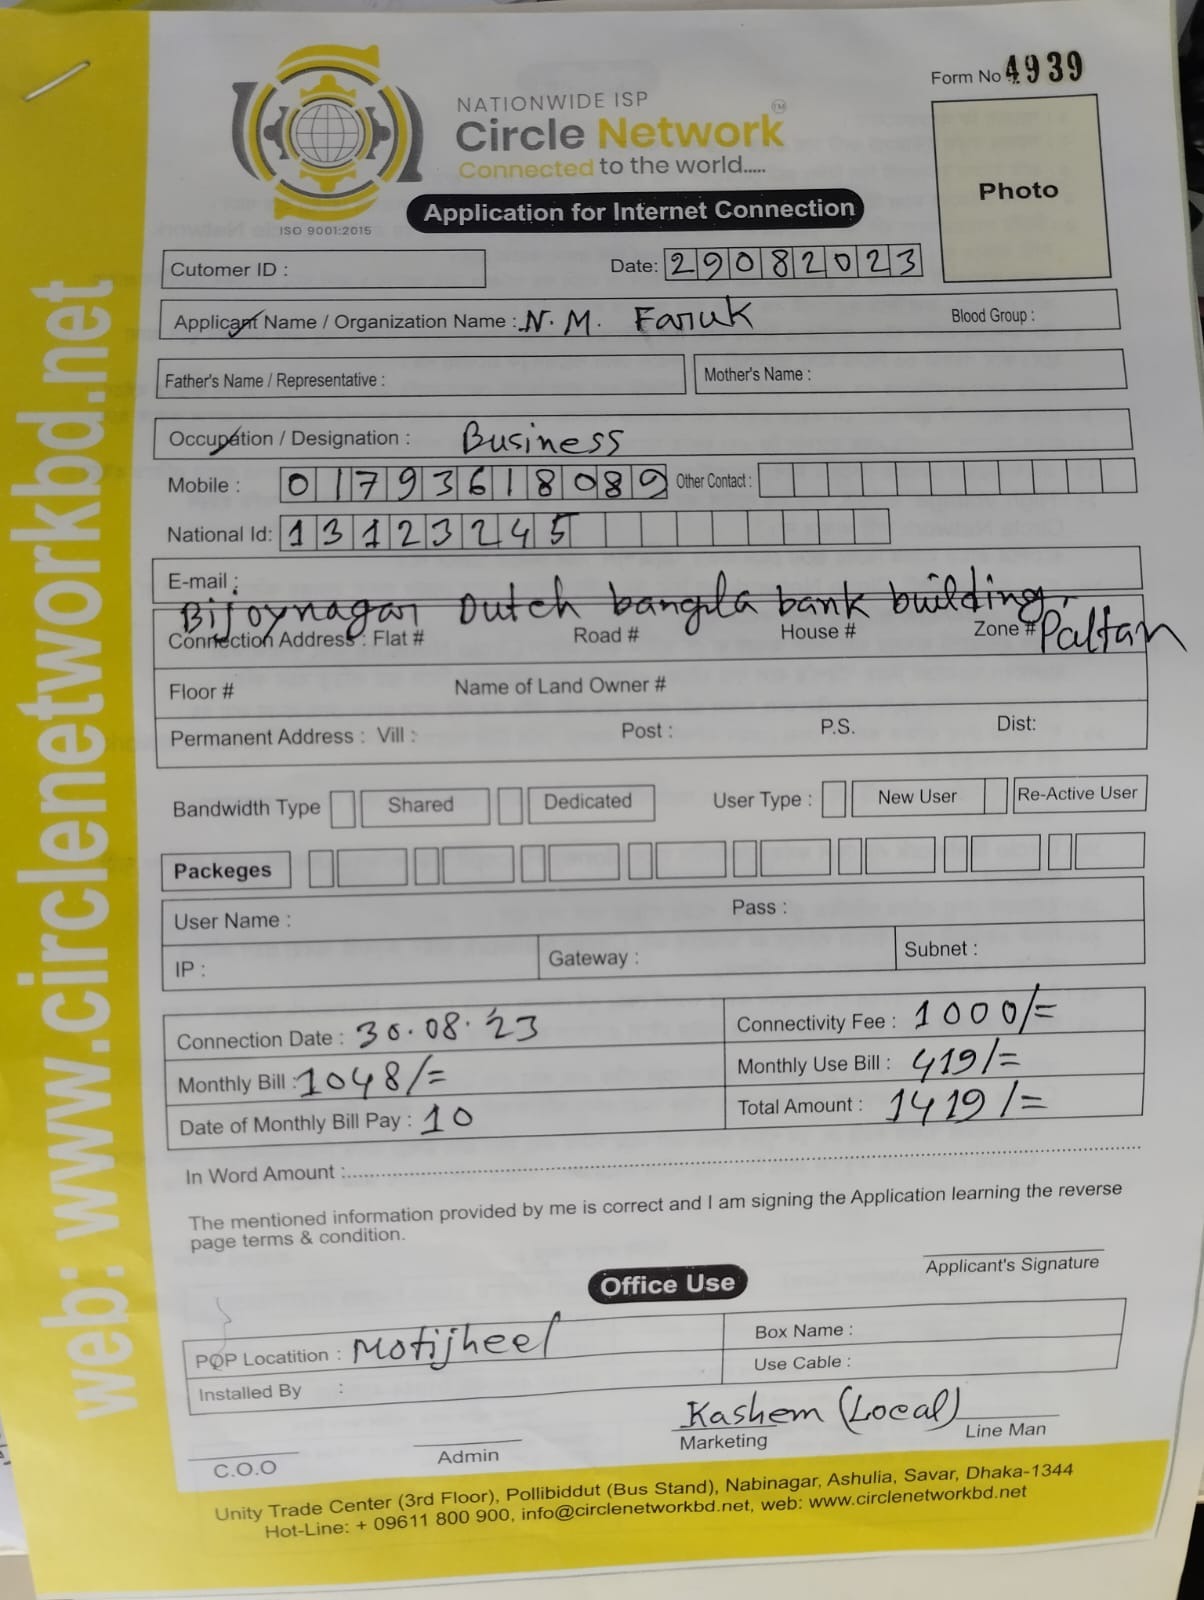 Form No 4939
NATIONWIDE ISP
Circle Network TM
Connected to the world.....
ISO 9001:2015
Application for Internet Connection
Photo
Cutomer ID :
Date: 29082023
Applicant Name / Organization Name : N. M. Faruk Blood Group :
Father's Name / Representative : Mother's Name :
Occupation / Designation : Business
Mobile : 01793618089 Other Contact :
National Id: 13123245
E-mail :
Bijoynagar Dutch bangla bank building, Paltan
Connection Address : Flat # Road # House # Zone #
Floor # Name of Land Owner #
Permanent Address : Vill : Post : P.S. Dist:
Bandwidth Type Shared Dedicated User Type : New User Re-Active User
Packeges
User Name : Pass :
IP : Gateway : Subnet :
Connection Date : 30.08.'23 Connectivity Fee : 1000/=
Monthly Bill : 1048/= Monthly Use Bill : 419/=
Date of Monthly Bill Pay : 10 Total Amount : 1419/=
In Word Amount :
The mentioned information provided by me is correct and I am signing the Application learning the reverse
page terms & condition.
Applicant's Signature
Office Use
POP Locatition : Motijheel Box Name :
Installed By : Use Cable :
Kashem (Local)
C.O.O Admin Marketing Line Man
Unity Trade Center (3rd Floor), Pollibiddut (Bus Stand), Nabinagar, Ashulia, Savar, Dhaka-1344
Hot-Line: + 09611 800 900, info@circlenetworkbd.net, web: www.circlenetworkbd.net
web: www.circlenetworkbd.net